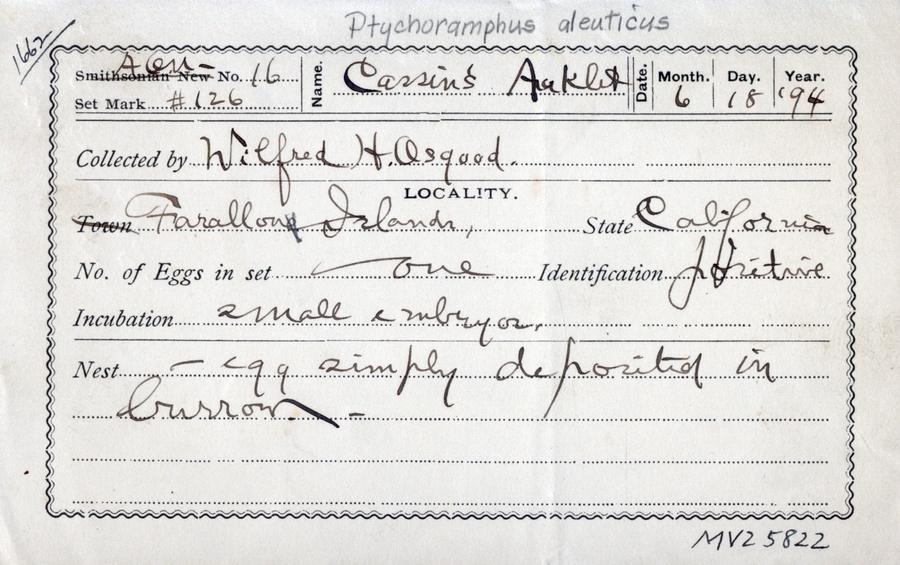 Ptychoramphus aleuticus
1662
Smithsonian New No. 16 Name. Cassin's Auklet Date. Month. Day. Year.
Set Mark #126 6 18 '94
Collected by Wilfred H. Osgood.
LOCALITY.
Town Farallone Islands, State California
No. of Eggs in set one Identification
Incubation small embryo.
Nest - egg simply deposited in
burrow -
MVZ 5822